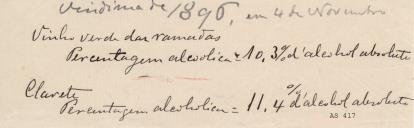 Vindima de 1896, em 4 de Novembro
Vinho verde das ramadas
Percentagem alcoolica = 10,3% d'alcohol absoluto
Clarete
Percentagem alcoholica = 11,4% d'alcohol absoluto
AS 417